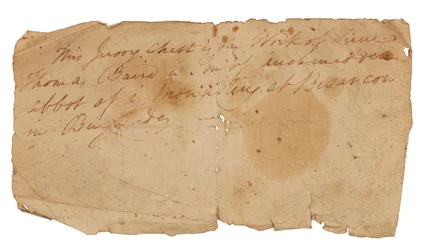 This Ivory Chest is the Work of Lieut
Thomas Baird a
abbot of a Monastery at Bisancon
in Burgundy